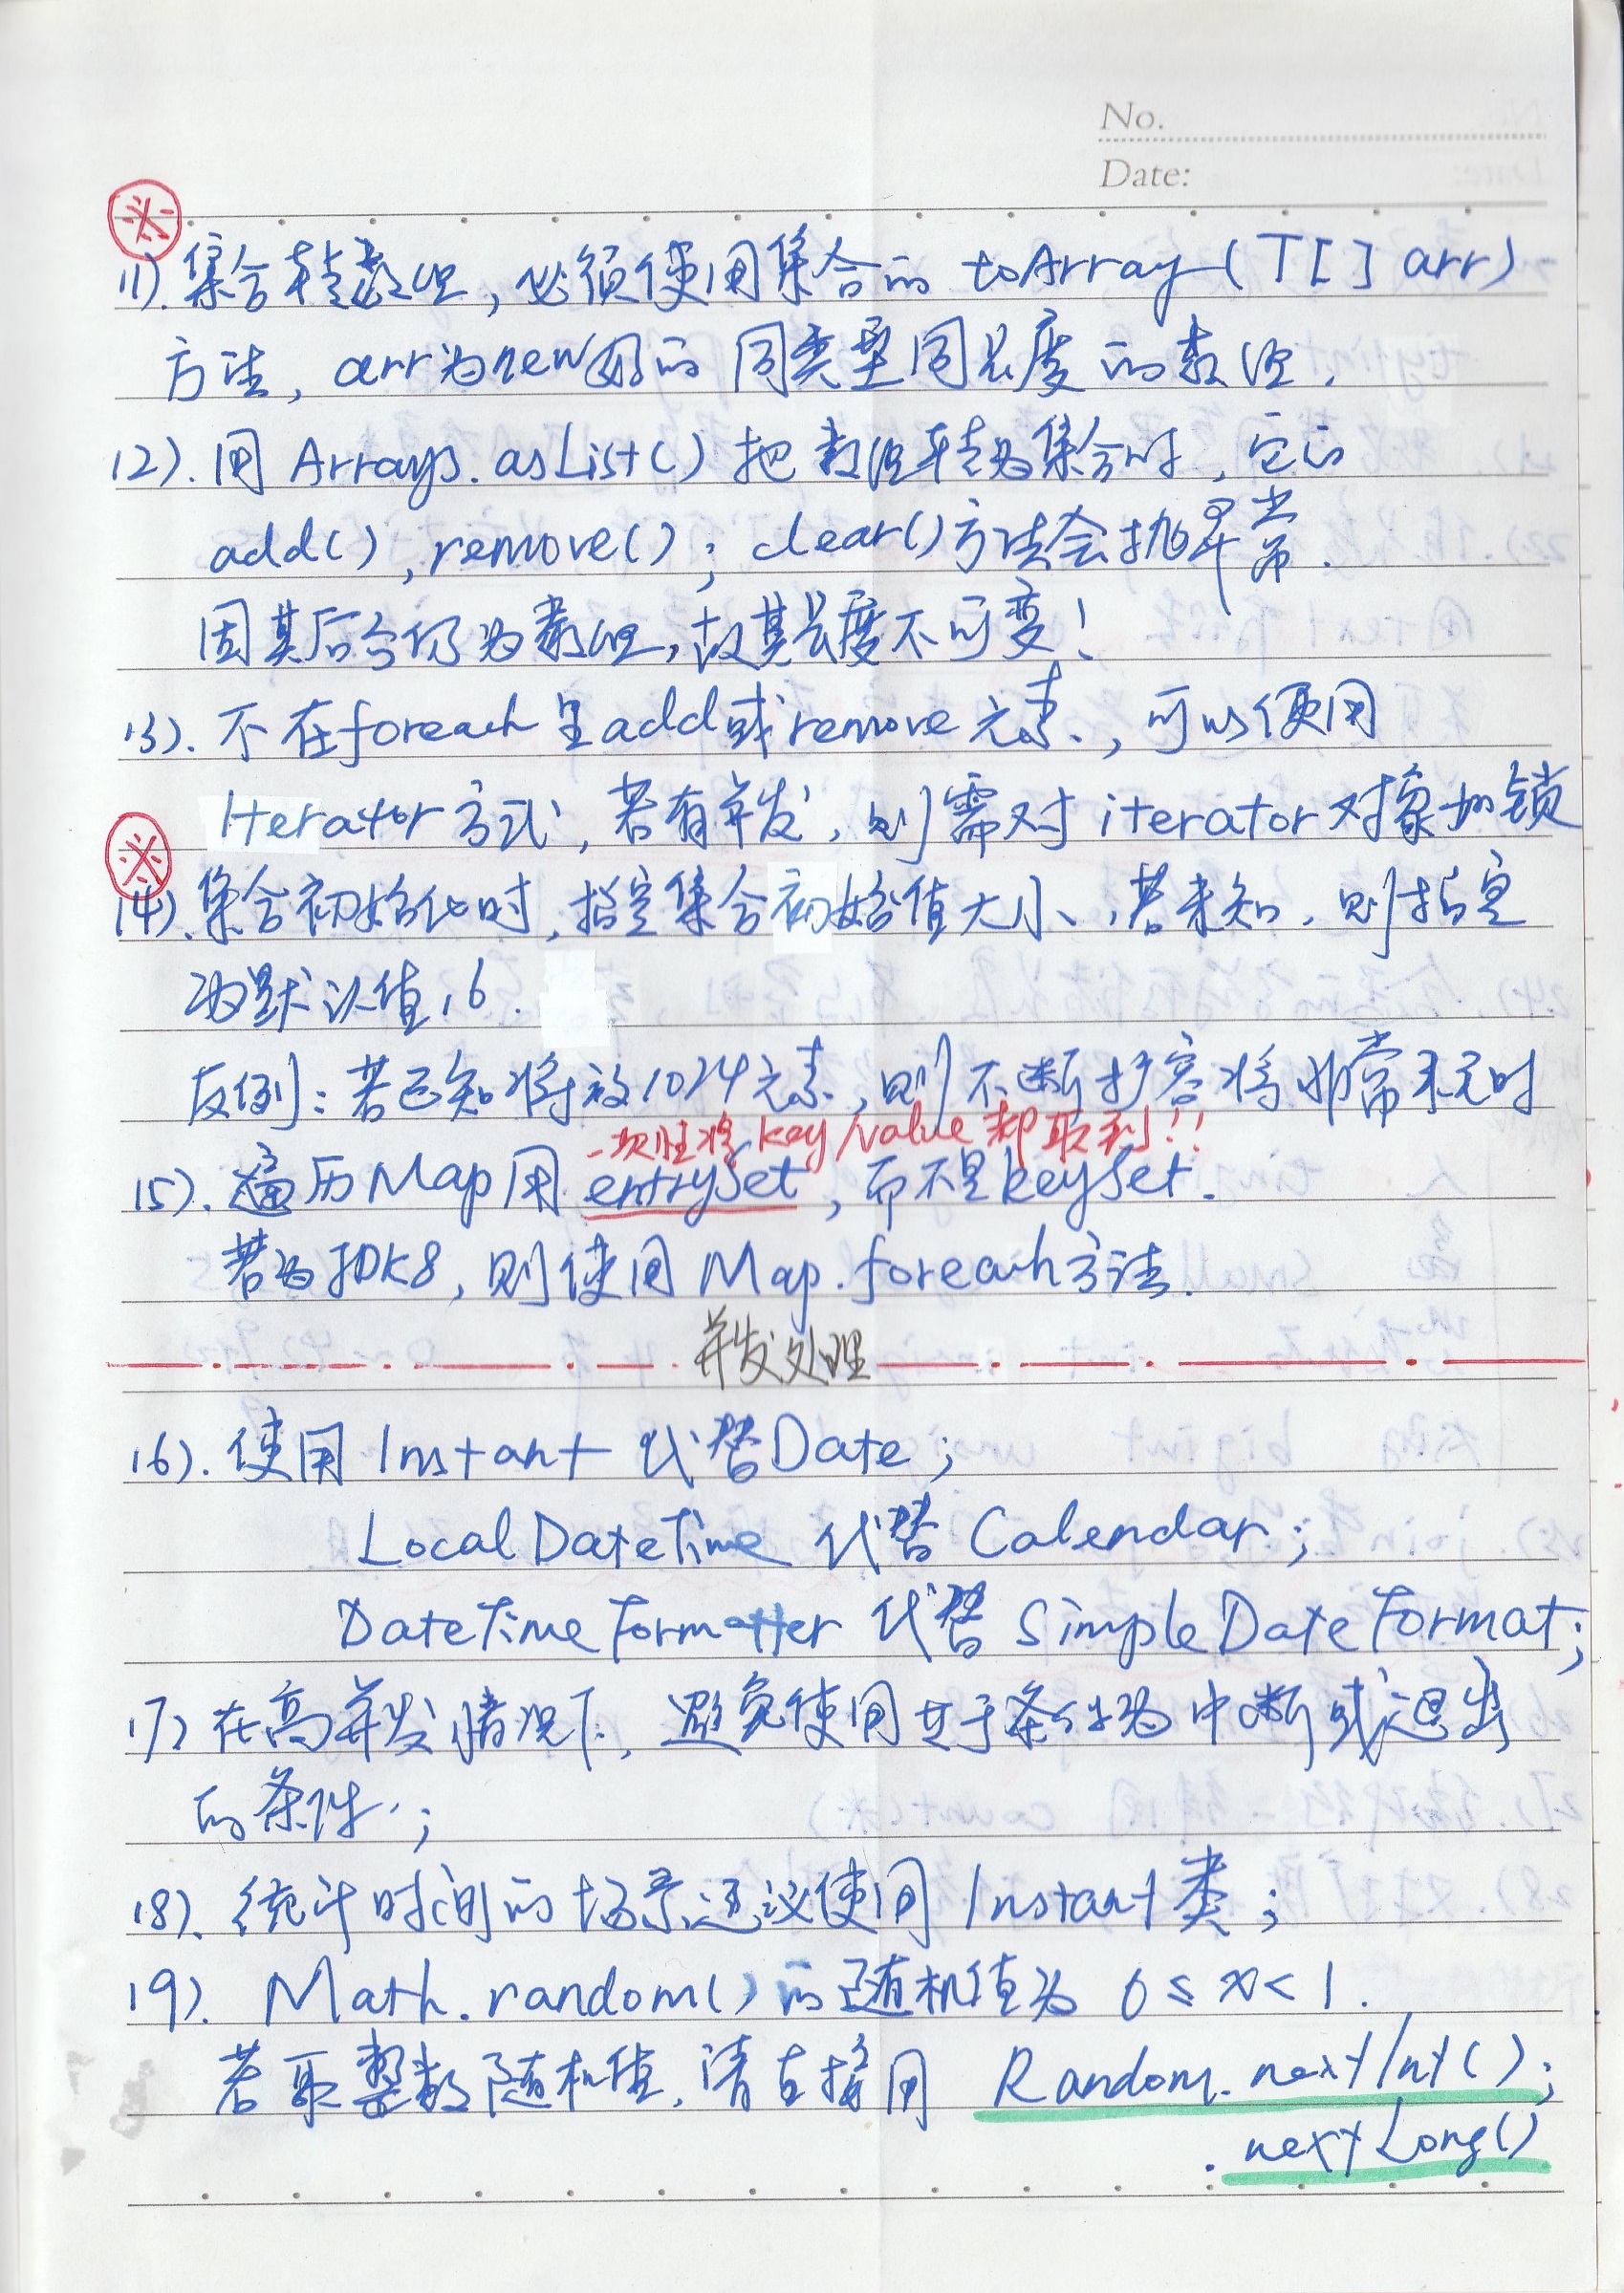 No.
Date:
※
11). 集合转数组, 必须使用集合的 toArray(T[] arr)
方法, arr为new好的 同类型同长度的数组.
12). 用 Arrays.asList() 把数组转为集合时, 它的
add(), remove(); clear()方法会抛异常.
因其后台仍为数组, 故其长度不可变!
13). 不在foreach里add或remove元素, 可以使用
Iterator方式, 若有并发, 则需对iterator对象加锁
※
14). 集合初始化时, 指定集合初始值大小, 若未知, 则指定
为默认值16.
反例: 若已知将放1024元素, 则不断扩容将非常耗时
一次性将key/value都取到!!
15). 遍历Map用 entrySet, 而不是keySet.
若为JDK8, 则使用Map.foreach方法.
并发处理
16). 使用Instant 代替Date;
LocalDateTime 代替 Calendar;
DateTimeFormatter 代替 SimpleDateFormat;
17) 在高并发情况下, 避免使用 于条件为中断或退出
的条件;
18). 统计时间的场景建议使用Instant类;
19). Math.random()的随机值为 0≤x<1.
若取整数随机值, 请直接用 Random.nextInt();
.nextLong()